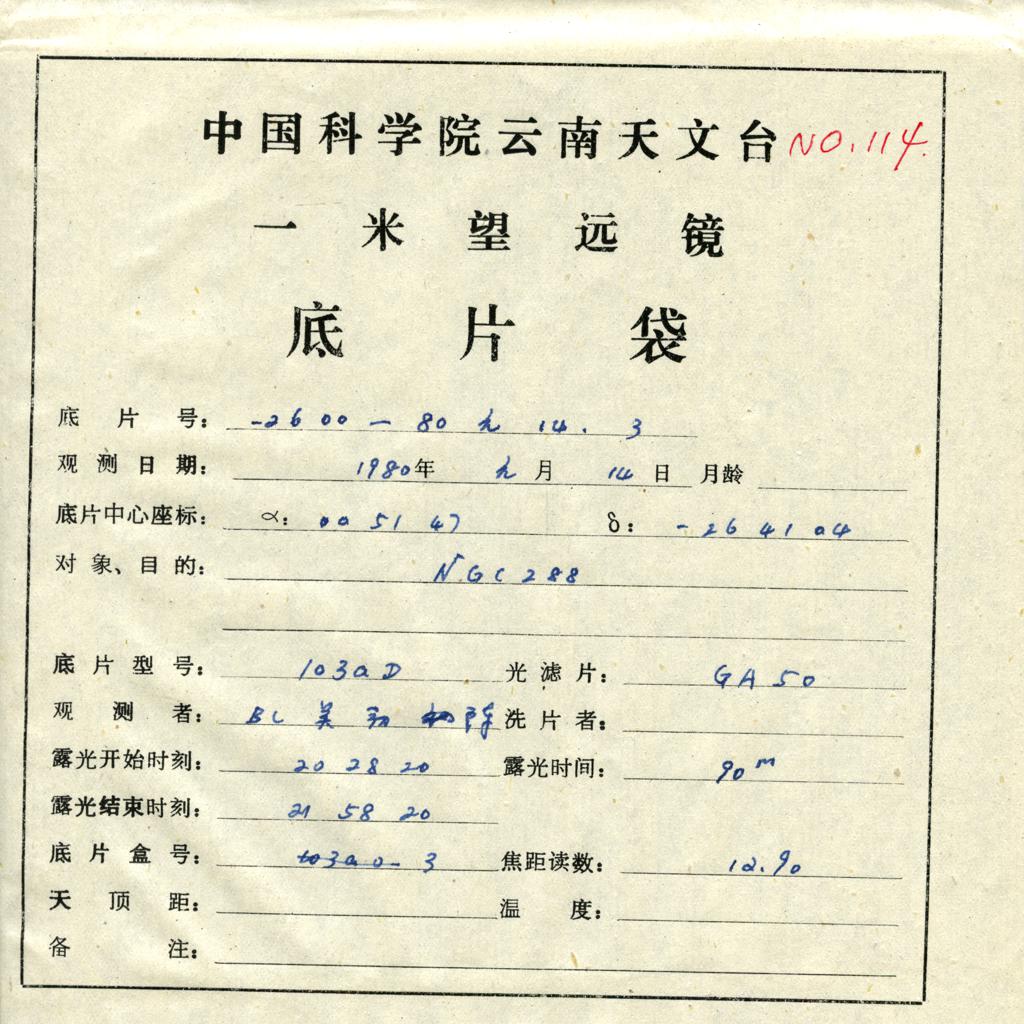 中国科学院云南天文台 NO.114.
一米望远镜
底片袋
底片号: -2600-80 九 14.3
观测日期: 1980年 九月 14日 月龄
底片中心座标: α: 00 51 47 δ: -26 41 04
对象、目的: NGC288
底片型号: 103aD 光滤片: GA 50
观测者: BC 美 洗片者:
露光开始时刻: 20 28 20 露光时间: 90m
露光结束时刻: 21 58 20
底片盒号: 3 焦距读数: 12.90
天顶距: 温度:
备注: